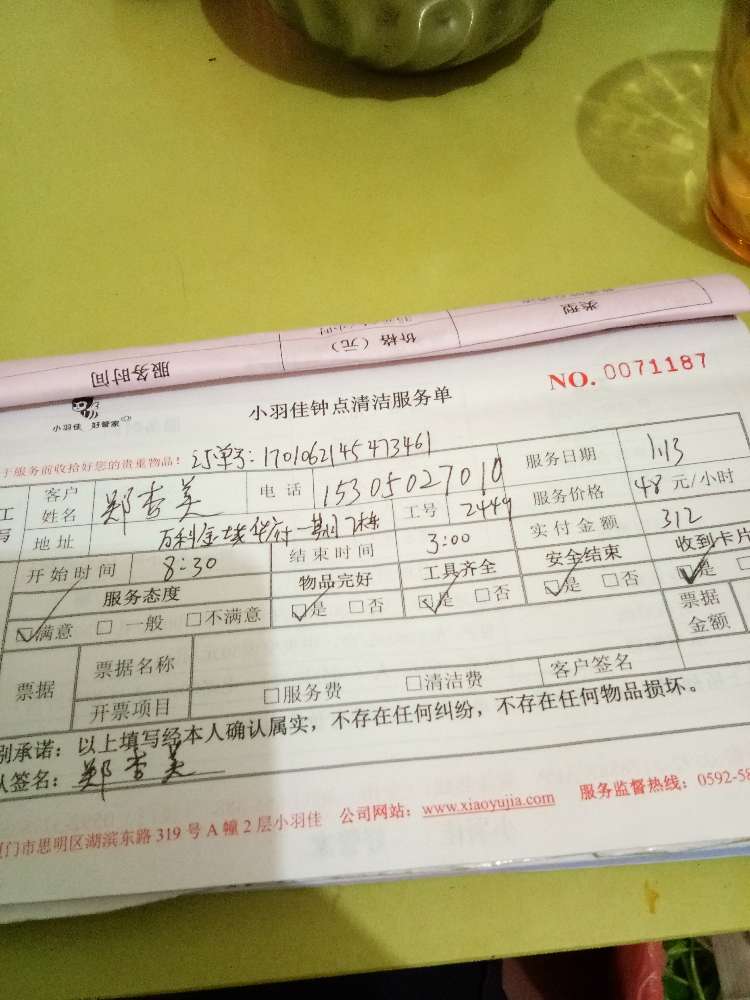 类型
价格（元）
服务时间
小羽佳 好管家
小羽佳钟点清洁服务单
NO. 0071187
于服务前收拾好您的贵重物品！ 订单号: 1701062145473461
工 客户姓名 郑杏美 电话 15305027010 服务日期 1.13
写 地址 万利金域华府一期7栋 工号 2449 服务价格 48 元/小时
开始时间 8:30 结束时间 3:00 实付金额 312
服务态度 物品完好 工具齐全 安全结束 收到卡片
☑满意 □一般 □不满意 ☑是 □否 ☑是 □否 ☑是 □否 ☑是 □
票据 票据名称 票据金额
开票项目 □服务费 □清洁费 客户签名
别承诺：以上填写经本人确认属实，不存在任何纠纷，不存在任何物品损坏。
认签名：郑杏美
门市思明区湖滨东路 319 号 A 幢 2 层小羽佳 公司网站：www.xiaoyujia.com 服务监督热线：0592-58